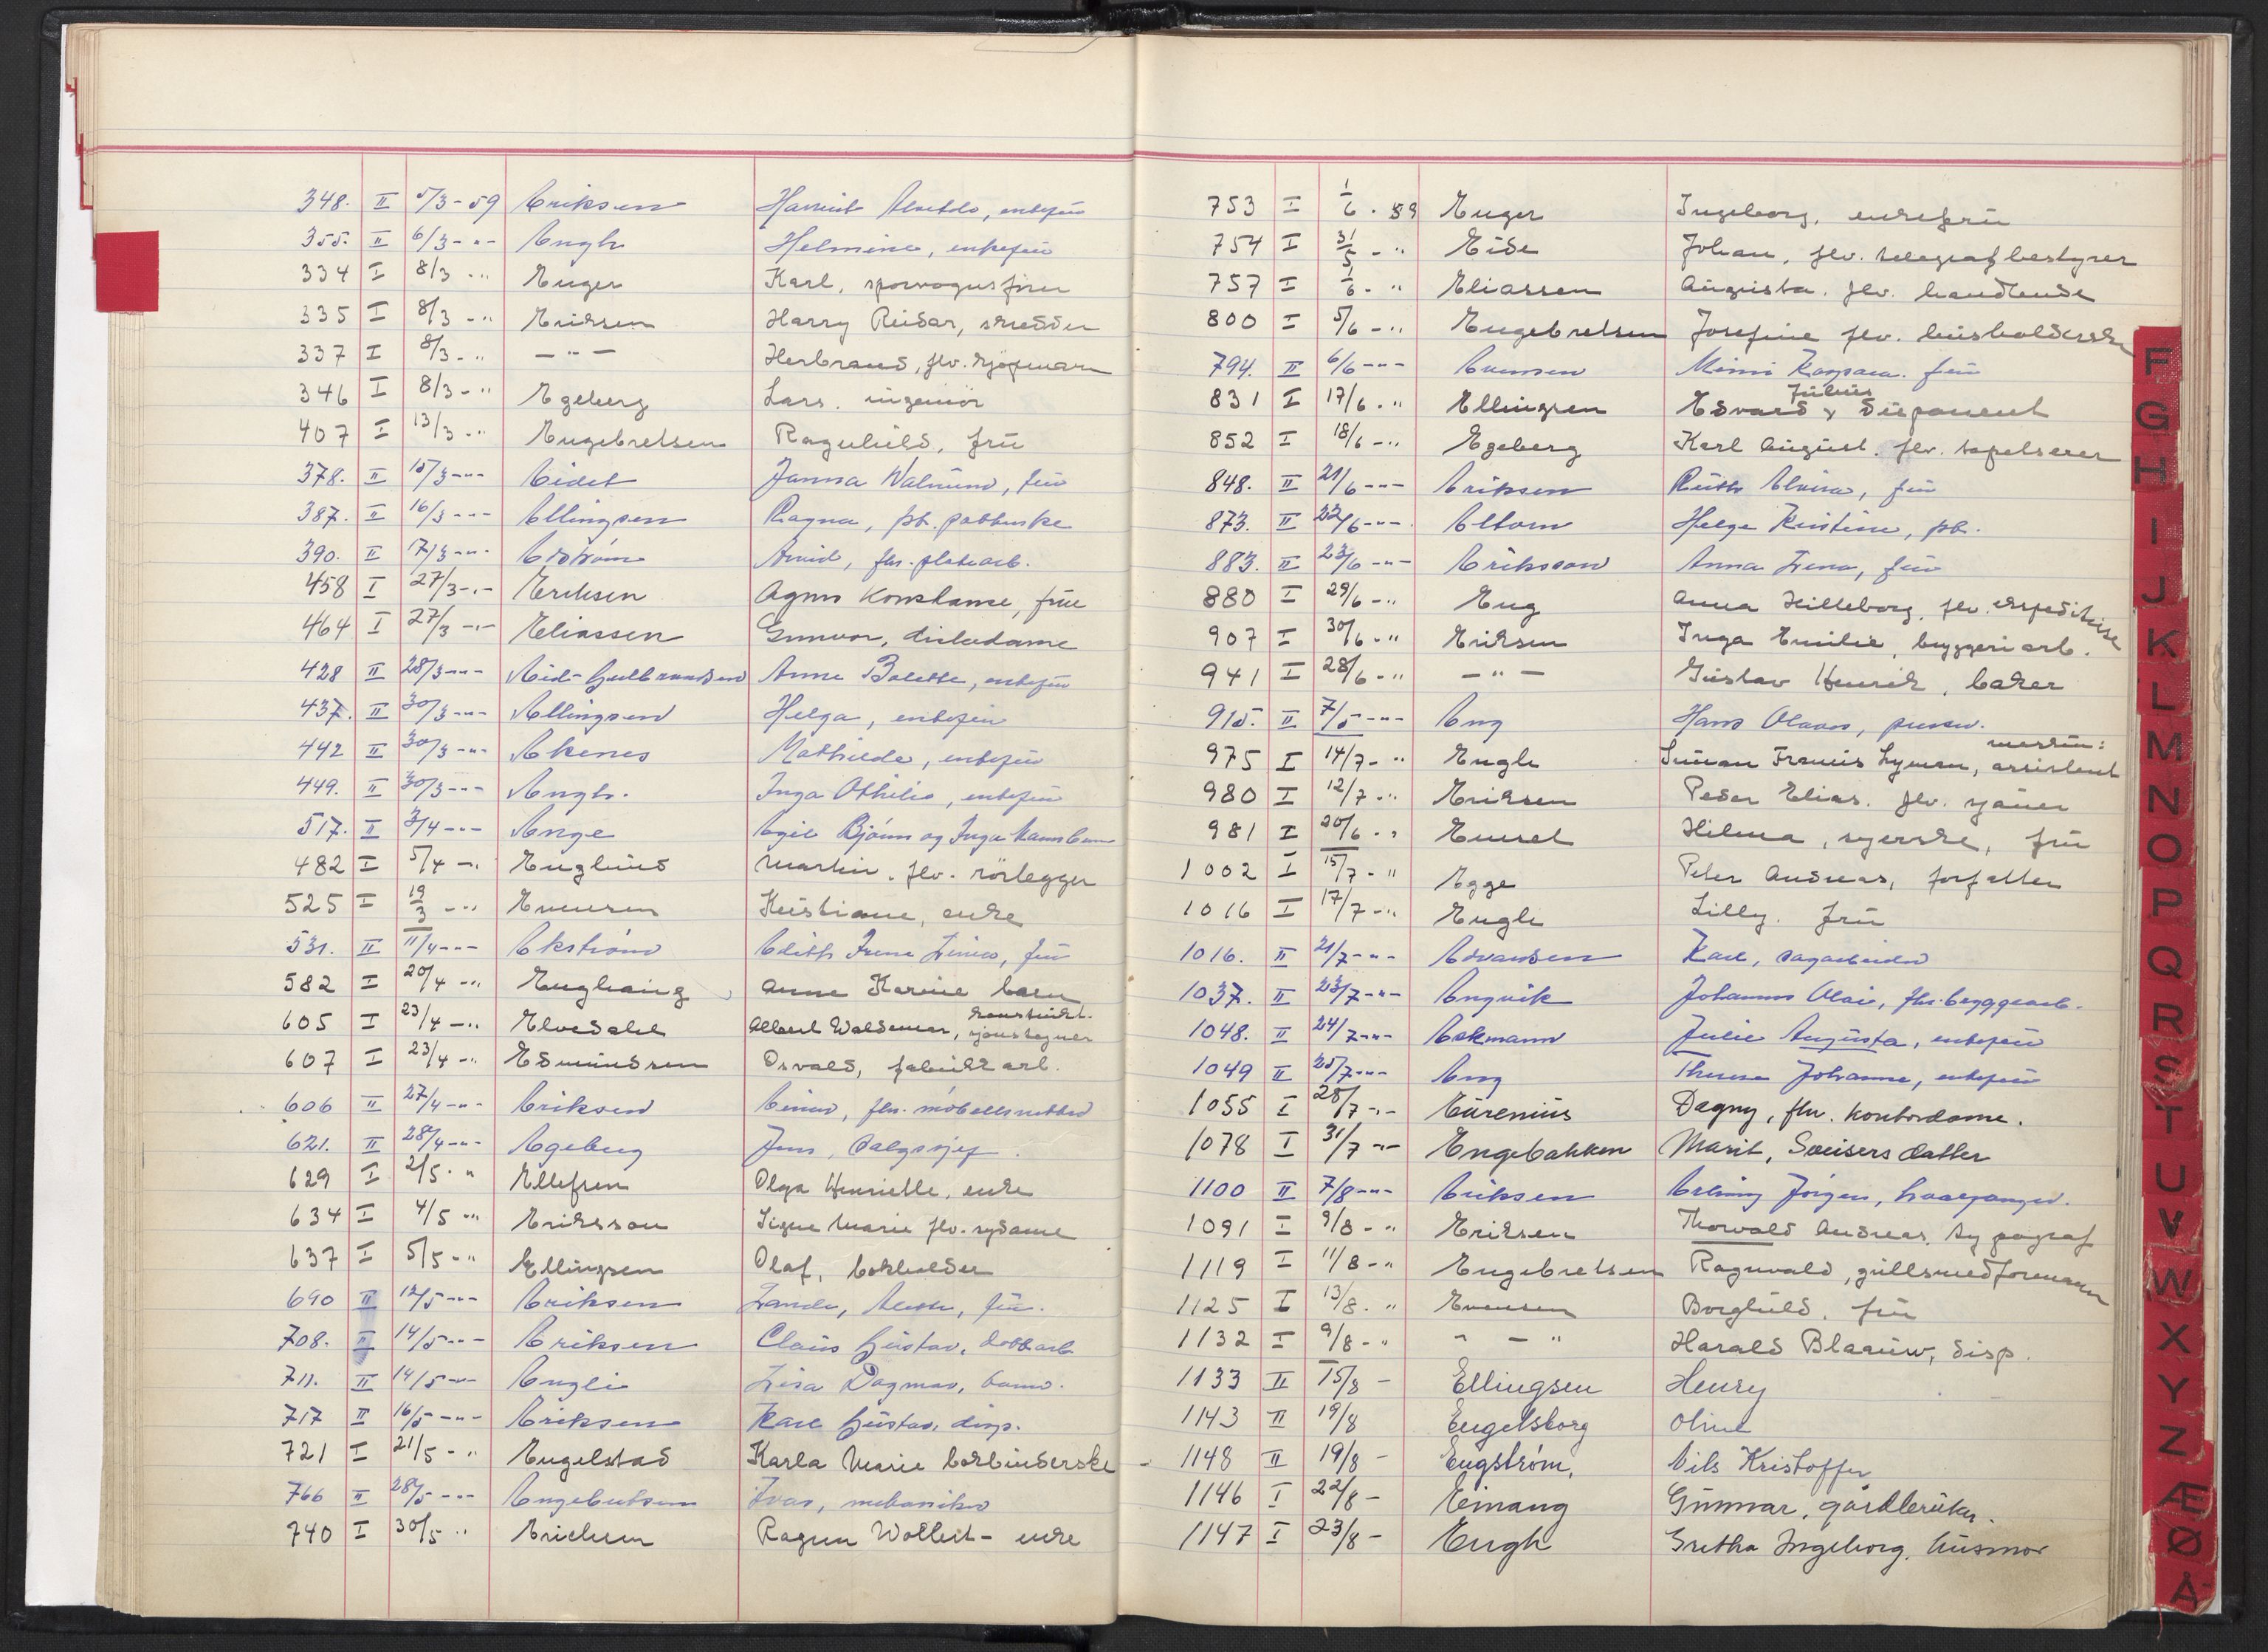 348. II 5/3-59 Eriksen Harriet, enkefru
355. II 6/3-"- Engh Helmine, enkefru
334 I 8/3-" Enger Karl, sporvognsfører
335 I 8/3-" Eriksen Harry Reidar, skredder
337 I 8/3-" -"- Herbrand, flv. sjøfmann
346 I 8/3-" Egeberg Lars, ingeniör
407 I 13/3-" Engebretsen Ragnhild, frü
378. II 15/3-"- Eidet Janna, frü
387. II 16/3-"- Ellingsen Ragna,
390. II 17/3-"- Edström Arvid, fhv. platearb.
458 I 27/3-"- Eriksen Agnes Konstanse, frue
464 I 27/3-"- Eliassen Gunvor,
428 II 28/3-"- Eid-Gulbrandsen Anne Bolette, enkefrü
437. II 30/3-"- Ellingsen Helga, enkefrü
442 II 30/3-"- Ekenes Mathilde, enkefrü
449. II 30/3-"- Engh. Inga Othilie, enkefrü
517. II 3/4-"- Enge Egil Bjørn og Inga
482 I 5/4-" Englund Martin. flv. rörlegger
525 I 19/3-" Evensen Kristiane, enke
531. II 11/4-"- Ekström Edith Irene, frü
582 I 20/4-" Enghaug Anne Karine barn
605 I 23/4-" Elvedahl Albert Waldemar, konstruksjonstegner
607 I 23/4-" Edmundsen Osvald, fabrikkarb.
606 II 27/4-"- Eriksen Einar, fhv. möbelsnekker
621. II 28/4-"- Egeberg Jens, salgssjef.
629 I 2/5-" Ellefsen Olga Henriette, enke
634 I 4/5-" Eriksson Signe Marie flv. sydame
637 I 5/5-" Ellingsen Olaf, bokholder
690 II 12/5-"- Eriksen frü.
708. II 14/5-"- Eriksen Claus Gustav,
711. II 14/5-"- Engli Dagmar,
717 II 16/5-"- Eriksen Karl Gustav, disp.
721 I 21/5-" Engelstad Karla Marie bokbinderske
766 II 28/5-"- Engebretsen Ivar, mekaniker
740 I 30/5-" Erichsen enke
753 I 1/6-59 Enger Ingeborg, enkefrü
754 I 31/5-" Eide Johan, flv. telegrafbestyrer
757 I 1/6-" Eliassen Augusta. flv. handlende
800 I 5/6-" Engebretsen Josefine flv. husholderske
794. II 6/6-"- Evensen Mimi. frü
831 I 17/6-" Ellingsen Edvard Julius, disponent
852 I 18/6-" Egeberg Karl August. flv. tapetserer
848. II 21/6-"- Eriksen Ruth Elvira, frü
873. II 22/6-"- Helge Kristine,
883. II 23/6-"- Eriksson Anna, frü
880 I 29/6-" Eng Anna Hilleborg, flv. ekspeditrise
907 I 30/6-" Eriksen Inga Emilie, bryggeriarb.
941 I 28/6-" -"- Gustav Henrik, baker
915. II 7/5-"- Eng Hans Olaves, pensj.
975 I 14/7-" Engh Simen Francis Lyman, assistent
980 I 12/7-" Eriksen Peder Elias. flv. sjauer
981 I 20/6-" Hilma, syerske, frü
1002 I 15/7-" Egge Peter Andreas, forfatter
1016 I 17/7-" Engh Lilly. frü
1016. II 21/7-"- Edvardsen Karl, sagarbeider
1037. II 23/7-"- Engvik Johannes Olai, fhv. byggearb.
1048. II 24/7-"- Eekmann Julie Augusta, enkefrü
1049 II 25/7-"- Eng Therese Johanne, enkefrü
1055 I 28/7-"- Eurenius Dagny, fhv. kontordame.
1078 I 31/7-"- Engebakken Marit, Sveisers datter
1100 II 7/8-"- Eriksen Erling Jörgen,
1091 I 9/8-" Eriksen Thorvald Andreas, typograf
1119 I 11/8-" Engebretsen Ragnvald, gullsmedformann
1125 I 13/8-" Evensen Borghild. frü
1132 I 9/8-" "-" Harald Blaauw, disp.
1133 II 15/8- Ellingsen Henry
1143 II 19/8 Engelsborg Oline
1148 II 19/8- Engström, Nils Kristoffer
1146 I 22/8- Einang Gunnar, gårdbruker.
1147 I 23/8- Engh Grethe Ingeborg, husmor
F
G
H
I
J
K
L
M
N
O
P
Q
R
S
T
U
V
W
X
Y
Z
Æ
Ø
Å